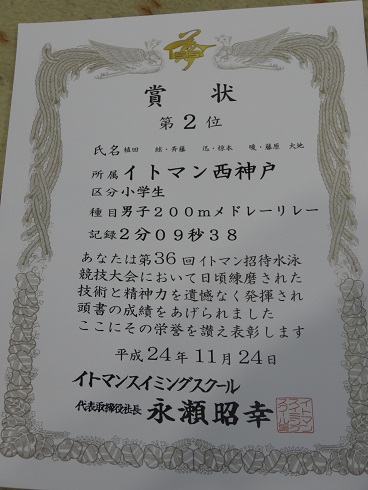 賞状
第2位
氏名 植田 ・斉藤 ・椋本 ・藤原 大地
所属 イトマン西神戸
区分 小学生
種目 男子200mメドレーリレー
記録 2分09秒38
あなたは第36回イトマン招待水泳
競技大会において日頃練磨された
技術と精神力を遺憾なく発揮され
頭書の成績をあげられました
ここにその栄誉を讃え表彰します
平成24年11月24日
イトマンスイミングスクール
代表取締役社長 永瀬昭幸